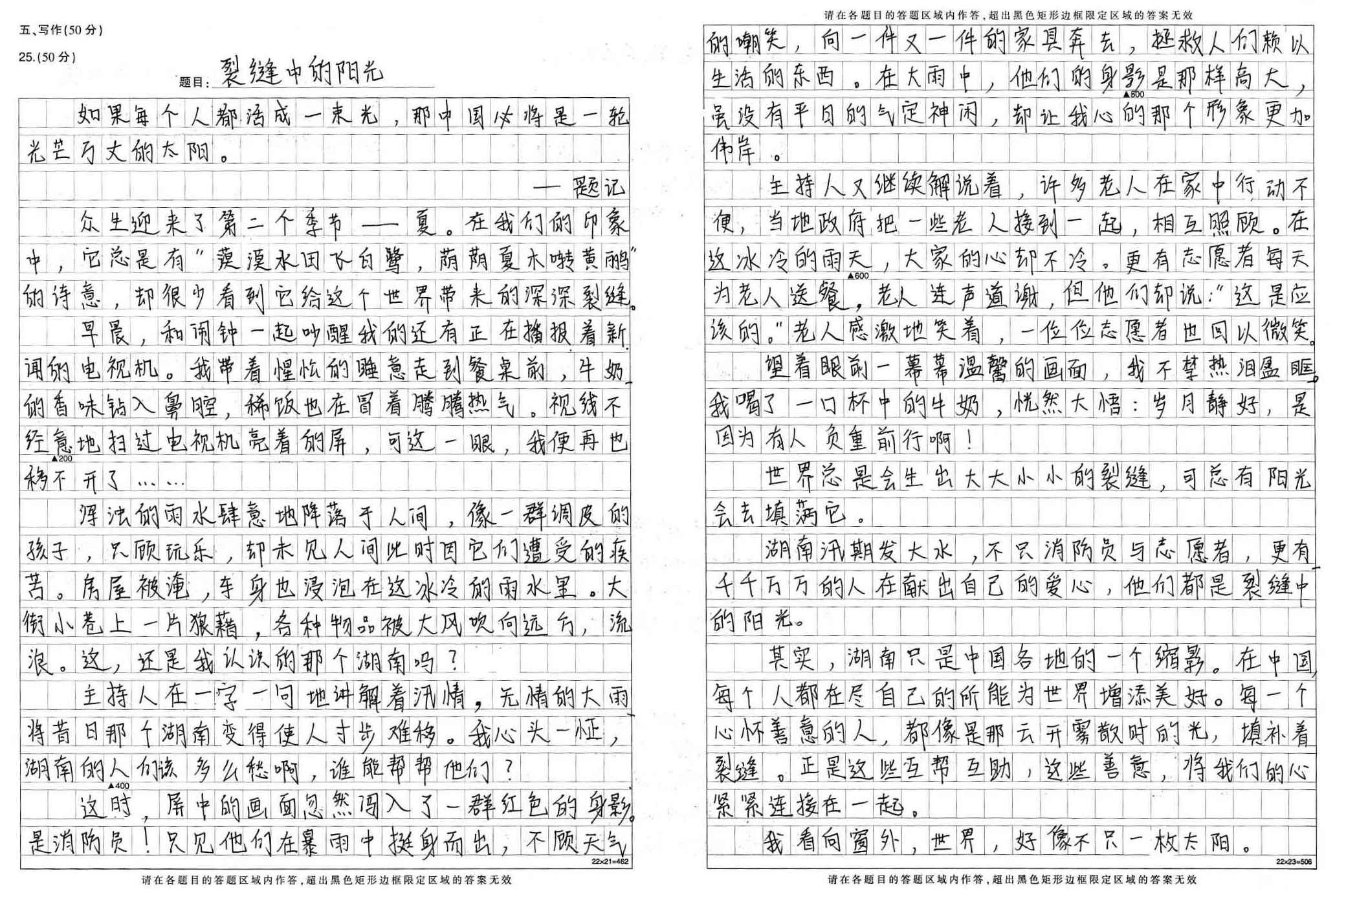 五、写作(50分)
25.(50分)
题目：裂缝中的阳光
如果每个人都活成一束光，那中国必将是一轮
光芒万丈的太阳。
—题记
众生迎来了第二个季节——夏。在我们的印象
中，它总是有“漠漠水田飞白鹭，荫荫夏木啭黄鹂”
的诗意，却很少看到它给这个世界带来的深深裂缝。
早晨，和闹钟一起吵醒我的还有正在播报着新
闻的电视机。我带着惺忪的睡意走到餐桌前，牛奶
的香味钻入鼻腔，稀饭也在冒着腾腾热气。视线不
经意地扫过电视机亮着的屏，可这一眼，我便再也
▲200
移不开了……
浑浊的雨水肆意地降落于人间，像一群调皮的
孩子，只顾玩乐，却未见人间此时因它们遭受的疾
苦。房屋被淹，车身也浸泡在这冰冷的雨水里。大
街小巷上一片狼藉，各种物品被大风吹向远方，流
浪。这，还是我认识的那个湖南吗？
主持人在一字一句地讲解着汛情。无情的大雨
将昔日那个湖南变得使人寸步难移。我心头一怔，
湖南的人们该多么愁啊，谁能帮帮他们？
▲400
这时，屏中的画面忽然闯入了一群红色的身影。
是消防员！只见他们在暴雨中挺身而出，不顾天气
22×21=462
请在各题目的答题区域内作答,超出黑色矩形边框限定区域的答案无效
请在各题目的答题区域内作答,超出黑色矩形边框限定区域的答案无效
的嘲笑，向一件又一件的家具奔去，拯救人们赖以
生活的东西。在大雨中，他们的身影是那样高大，
虽没有平日的气定神闲，却让我心的那个形象更加
伟岸。
主持人又继续解说着，许多老人在家中行动不
便，当地政府把一些老人接到一起，相互照顾。在
这冰冷的雨天，大家的心却不冷。更有志愿者每天
▲600
为老人送餐，老人连声道谢，但他们却说：“这是应
该的。”老人感激地笑着，一位位志愿者也回以微笑。
望着眼前一幕幕温馨的画面，我不禁热泪盈眶。
我喝了一口杯中的牛奶，恍然大悟：岁月静好，是
因为有人负重前行啊！
世界总是会生出大大小小的裂缝，可总有阳光
会去填满它。
湖南汛期发大水，不只消防员与志愿者，更有
千千万万的人在献出自己的爱心，他们都是裂缝中
的阳光。
其实，湖南只是中国各地的一个缩影。在中国，
每个人都在尽自己的所能为世界增添美好。每一个
心怀善意的人，都像是那云开雾散时的光，填补着
裂缝。正是这些互帮互助，这些善意，将我们的心
紧紧连接在一起。
我看向窗外，世界，好像不只一枚太阳。
22×23=506
请在各题目的答题区域内作答,超出黑色矩形边框限定区域的答案无效